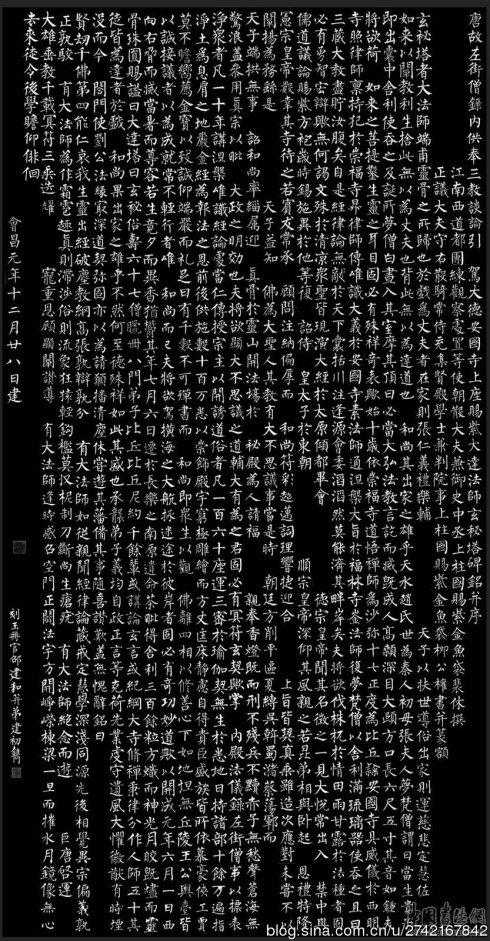 唐故左街僧錄內供奉三教談論引 駕大德安國寺上座賜紫大達法師玄秘塔碑銘并序
江南西道都團練觀察處置等使朝散大夫兼御史中丞上柱國賜紫金魚袋裴休撰
正議大夫守右散騎常侍充集賢殿學士兼判院事上柱國賜紫金魚袋柳公權書并篆額
玄秘塔者大法師端甫靈骨之所歸也於戲為丈夫者在家則張仁義禮樂輔 天子以扶世導俗出家則運慈悲定慧佐
如來以闡教利生捨此無以為丈夫也背此無以為達道也 和尚其出家之雄乎天水趙氏 世為秦人初母張夫人夢梵僧謂曰當生貴子
即出囊中舍利使吞之及誕所夢僧白晝入其室摩其頂曰必當大弘法教言訖而滅既成人高顙深目大頤方口長六尺五寸其音如鍾夫
將欲荷 如來之菩提鑿生靈之耳目固必有殊祥奇表歟始十歲依崇福寺道悟禪師為沙彌十七正度為比丘隸安國寺具威儀於西明
寺照律師稟持犯於崇福寺昇律師傳唯識大義於安國寺素法師通涅槃大旨於福林寺崟法師復夢梵僧以舍利滿琉璃器使吞之且曰
三藏大教盡貯汝腹矣自是經律論無敵於天下囊括川注逢源會委滔滔然莫能濟其畔岸矣夫將欲伐株杌於情田雨甘露於法種者固
必有勇智宏辯歟無何謁文殊於清涼眾聖皆現演大經於太原傾都畢會 德宗皇帝聞其名徵之一見大悅常出入 禁中與
儒道議論賜紫方袍歲時錫施異於他等復 詔侍 皇太子於東朝 順宗皇帝深仰其風親之若昆弟相與臥起 恩禮特隆
憲宗皇帝數幸其寺待之若賓友常承 顧問注納偏厚而 和尚符彩超邁詞理響捷迎合 上旨皆契真乘雖造次應對未嘗不以
闡揚為務繇是 天子益知 佛為大聖人其教有大不思議事當是時 朝廷方削平區夏縛吳斡蜀瀦蔡蕩鄆而
天子端拱無事 詔和尚率緇屬迎 真骨於靈山開法場於 秘殿為人請福 親奉香燈既而刑不殘兵不黷赤子無愁聲蒼海無
驚浪蓋參用真宗以毗 大政之明效也夫將欲顯大不思議之道輔大有為之君固必有冥符玄契歟掌 內殿法儀錄左街僧事以標表
淨眾者凡一十年講涅槃唯識經論處當仁傳授宗主以開誘道俗者凡一百六十座運三密於瑜伽契無生於悉地日持諸部十餘萬遍指
淨土為息肩之地嚴金經為報法之恩前後供施數十百萬悉以崇飾殿宇窮極雕繪而方丈匡床靜慮自得貴臣盛族皆所依慕豪俠工賈
莫不瞻嚮薦金寶以致誠仰端嚴而禮足日有千數不可殫書而 和尚即眾生以觀 佛離四相以修善心下如地坦無丘陵王公輿臺皆
以誠接議者以為成就常不輕行者唯 和尚而已夫將欲駕橫海之大航拯迷途於彼岸者固必有奇功妙道歟以開成元年六月一日西
向右脅而滅當暑而尊容若生竟夕而異香猶鬱其年七月六日遷於長樂之南原遺命荼毗得舍利三百餘粒方熾而神光月皎既燼而靈
骨珠圓賜諡曰大達塔曰玄秘俗壽六十七僧臘卌八門弟子比丘比丘尼約千餘輩或講論玄言或紀綱大寺脩禪秉律分作人師五十其
徒皆為達者於戲 和尚果出家之雄乎不然何至德殊祥如此其盛也承襲弟子義均自政正言等克荷先業虔守遺風大懼徽猷有時堙
沒而今 閤門使劉公法緣最深道契彌固亦以為請願播清塵休嘗遊其藩備其事隨喜讚歎蓋無愧辭銘曰
賢劫千佛第四能仁哀我生靈出經破塵教網高張孰辯孰分 有大法師如從親聞經律論藏戒定慧學深淺同源先後相覺異宗偏義孰
正孰駁 有大法師為作霜雹趣真則滯涉俗則流象狂猿輕鉤檻莫收柅制刀斷尚生瘡疣 有大法師絕念而遊 巨唐啟運
大雄垂教千載冥符三乘迭耀 寵重恩顧顯闡讚導 有大法師逢時感召空門正闢法宇方開崢嶸棟梁一旦而摧水月鏡像無心
去來徒令後學瞻仰徘徊
會昌元年十二月廿八日建
刻玉冊官邵建和并弟建初鐫
blog.sina.com.cn/u/2742167842